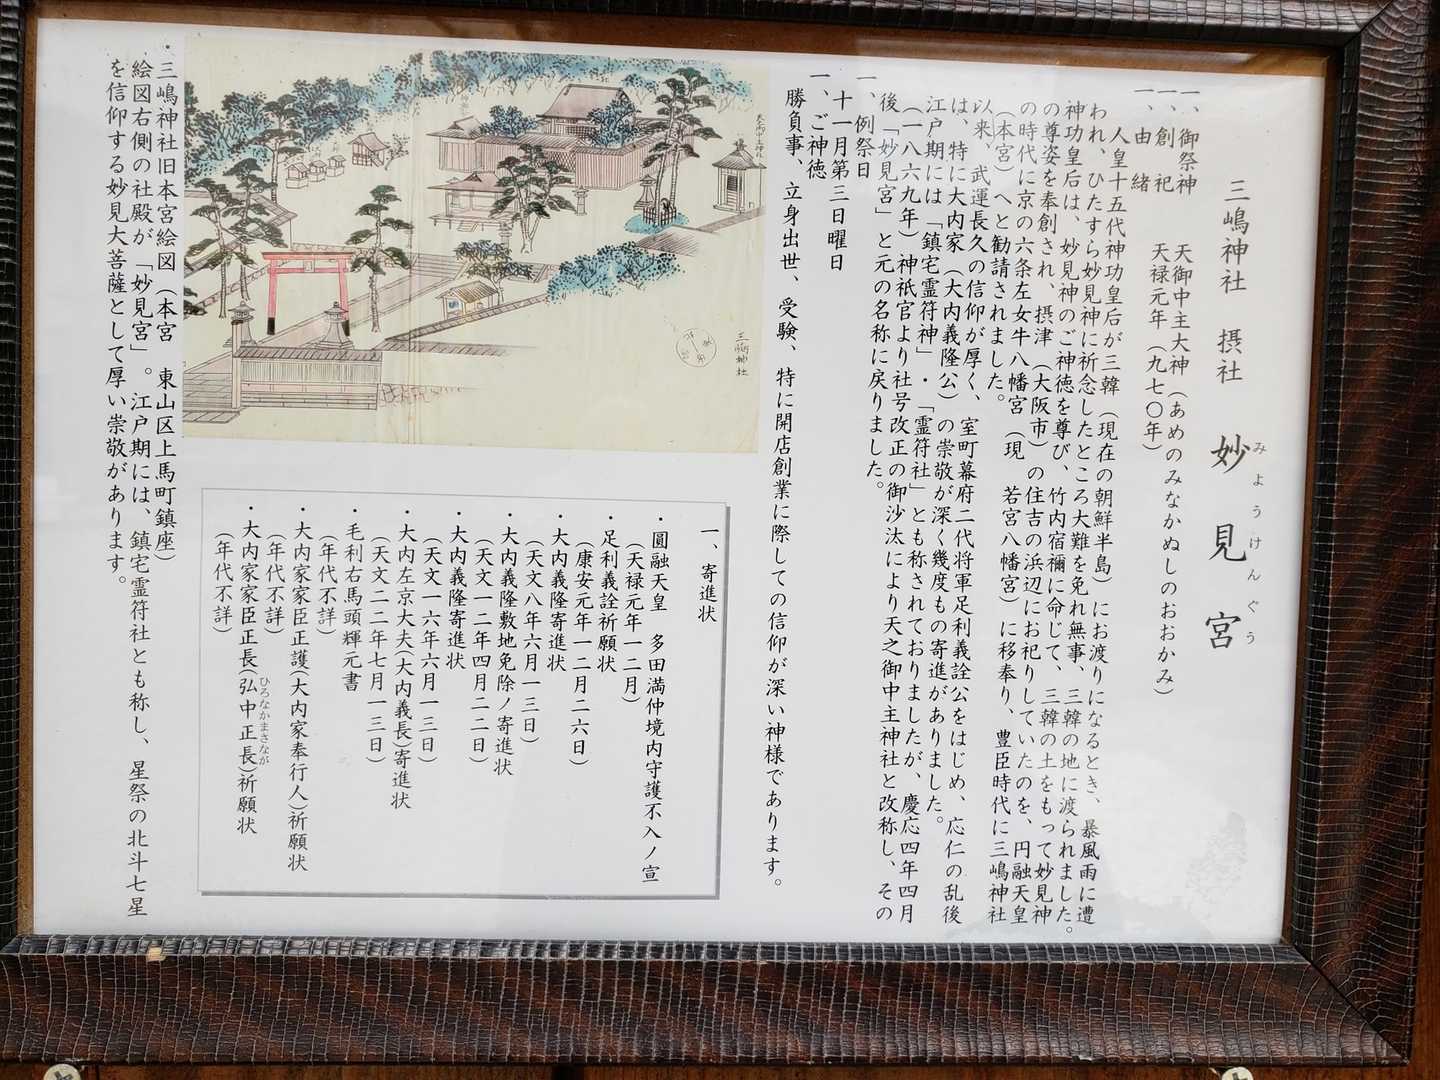 三嶋神社 摂社 妙見宮
みょうけんぐう
一、御祭神 天御中主大神（あめのみなかぬしのおおかみ）
一、創祀 天禄元年（九七〇年）
一、由緒
人皇十五代神功皇后が三韓（現在の朝鮮半島）にお渡りになるとき、暴風雨に遭
われ、ひたすら妙見神に祈念したところ大難を免れ無事、三韓の地に渡られました。
神功皇后は、妙見神のご神徳を尊び、竹内宿禰に命じて、三韓の土をもって妙見神
の尊姿を奉創され、摂津（大阪市）の住吉の浜辺にお祀りしていたのを、円融天皇
の時代に京の六条左女牛八幡宮（現 若宮八幡宮）に移奉り、豊臣時代に三嶋神社
（本宮）へと勧請されました。
以来、武運長久の信仰が厚く、室町幕府二代将軍足利義詮公をはじめ、応仁の乱後
は、特に大内家（大内義隆公）の崇敬が深く幾度もの寄進がありました。
江戸期には「鎮宅霊符神」・「霊符社」とも称されておりましたが、慶応四年四月
（一八六九年）神祇官より社号改正の御沙汰により天之御中主神社と改称し、その
後「妙見宮」と元の名称に戻りました。
一、例祭日
十一月第三日曜日
一、ご神徳
勝負事、立身出世、受験、特に開店創業に際しての信仰が深い神様であります。
天御中主神社
三嶋神社
一、寄進状
・圓融天皇 多田満仲境内守護不入ノ宣
（天禄元年一二月）
・足利義詮祈願状
（康安元年一二月二六日）
・大内義隆寄進状
（天文八年六月一三日）
・大内義隆敷地免除ノ寄進状
（天文一二年四月二二日）
・大内義隆寄進状
（天文一六年六月一三日）
・大内左京大夫（大内義長）寄進状
（天文二二年七月一三日）
・毛利右馬頭輝元書
（年代不詳）
・大内家家臣正護（大内家奉行人）祈願状
（年代不詳）
・大内家家臣正長（弘中正長）祈願状
ひろなかまさなが
（年代不詳）
・三嶋神社旧本宮絵図（本宮 東山区上馬町鎮座）
絵図右側の社殿が「妙見宮」。江戸期には、鎮宅霊符社とも称し、星祭の北斗七星
を信仰する妙見大菩薩として厚い崇敬があります。